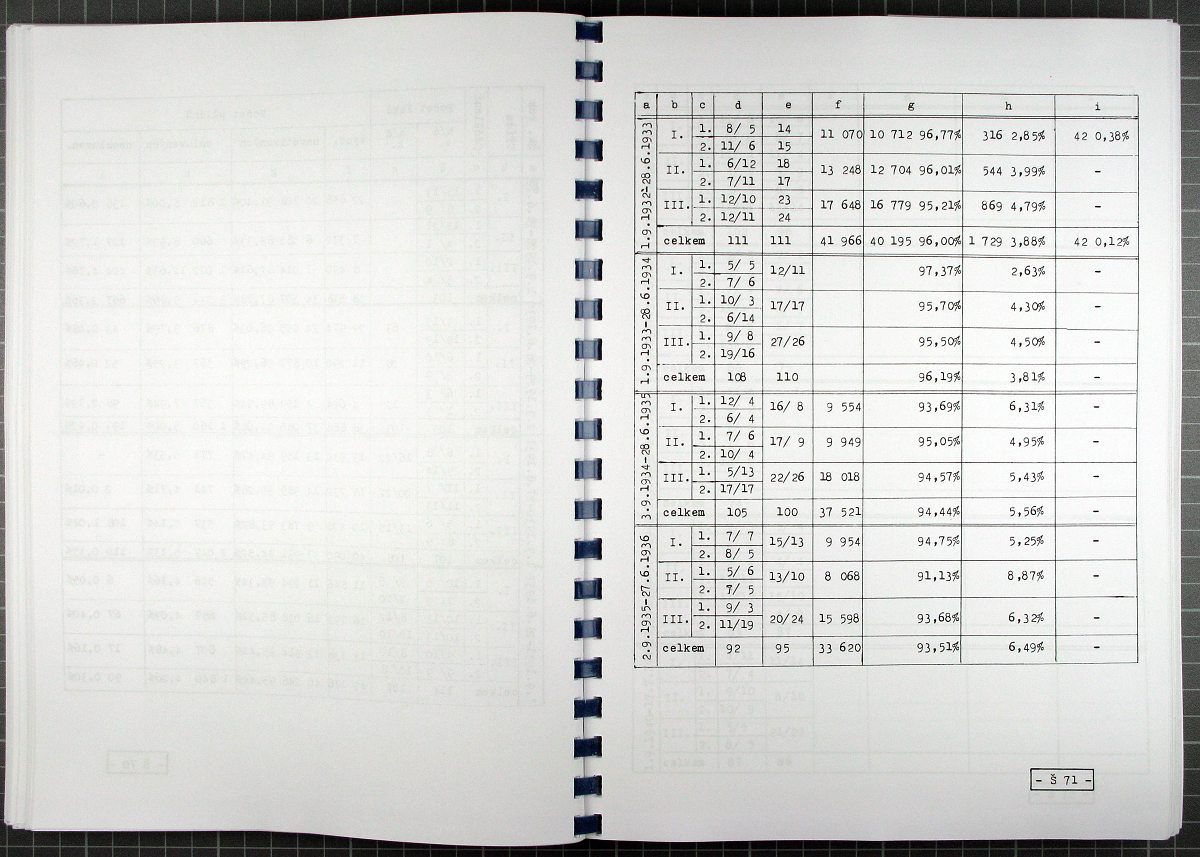 a b c d e f g h i
1.9.1932-28.6.1933
I. 1. 8/ 5 14 11 070 10 712 96,77% 316 2,85% 42 0,38%
2. 11/ 6 15
II. 1. 6/12 18 13 248 12 704 96,01% 544 3,99% –
2. 7/11 17
III. 1. 12/10 23 17 648 16 779 95,21% 869 4,79% –
2. 12/11 24
celkem 111 111 41 966 40 195 96,00% 1 729 3,88% 42 0,12%
1.9.1933-28.6.1934
I. 1. 5/ 5 12/11 97,37% 2,63% –
2. 7/ 6
II. 1. 10/ 3 17/17 95,70% 4,30% –
2. 6/14
III. 1. 9/ 8 27/26 95,50% 4,50% –
2. 19/16
celkem 108 110 96,19% 3,81% –
3.9.1934-28.6.1935
I. 1. 12/ 4 16/ 8 9 554 93,69% 6,31% –
2. 6/ 4
II. 1. 7/ 6 17/ 9 9 949 95,05% 4,95% –
2. 10/ 4
III. 1. 5/13 22/26 18 018 94,57% 5,43% –
2. 17/17
celkem 105 100 37 521 94,44% 5,56% –
2.9.1935-27.6.1936
I. 1. 7/ 7 15/13 9 954 94,75% 5,25% –
2. 8/ 5
II. 1. 5/ 6 13/10 8 068 91,13% 8,87% –
2. 7/ 5
III. 1. 9/ 3 20/24 15 598 93,68% 6,32% –
2. 11/19
celkem 92 95 33 620 93,51% 6,49% –
- Š 71 -